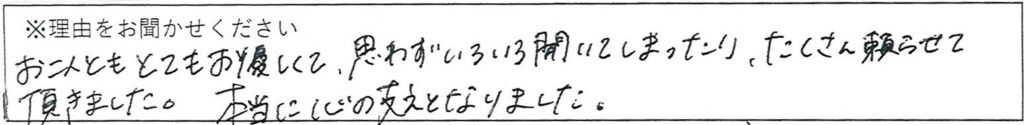 ※理由をお聞かせください
お二人ともとてもお優しくて、思わずいろいろ聞いてしまったり、たくさん頼らせて
頂きました。 本当に心の支えとなりました。